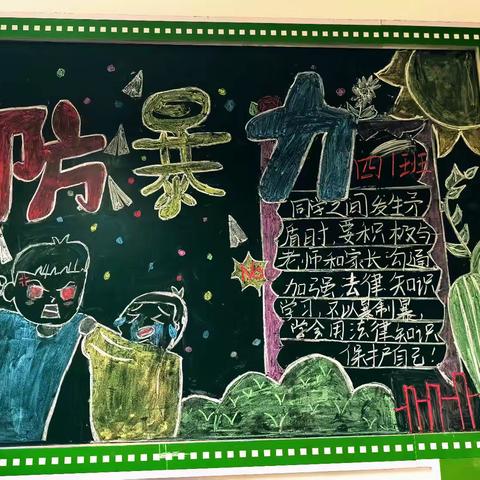 防暴力
四1班
同学之间发生矛
盾时,要积极与
老师和家长沟通
加强法律知识
学习,不以暴制暴,
学会用法律知识
保护自己!
NO